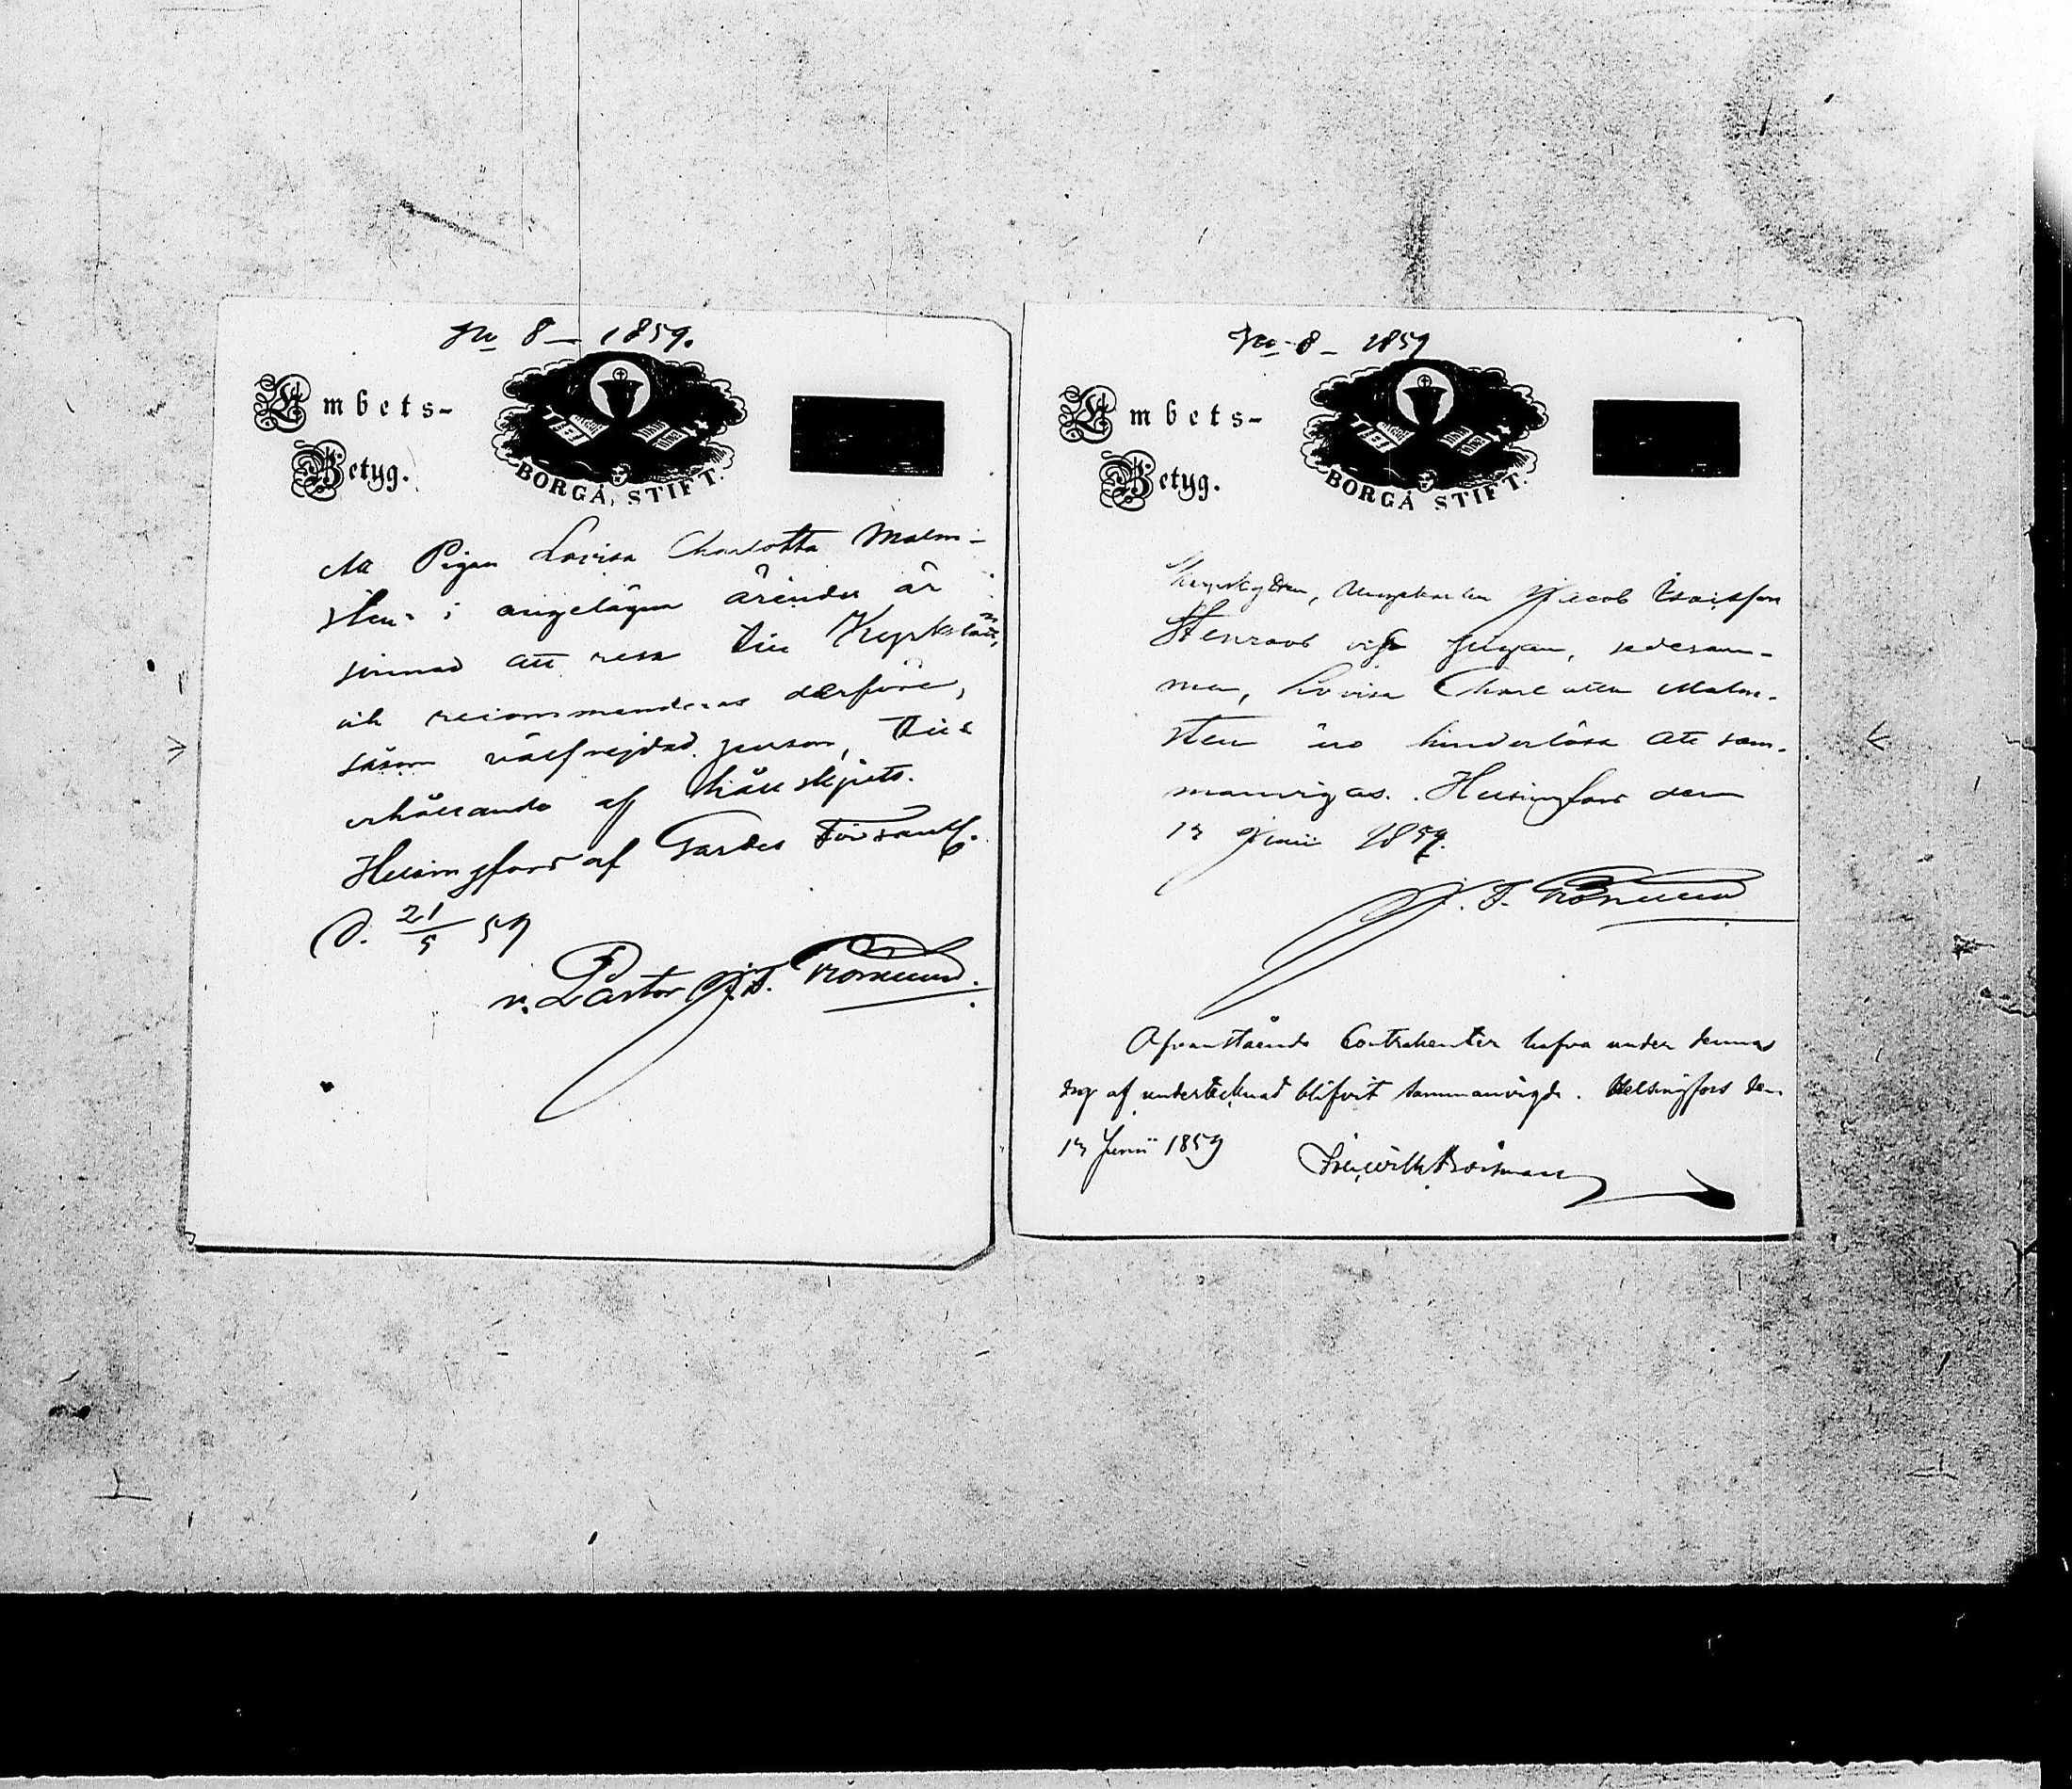 No 8 – 1859.
Embets-
Betyg.
BORGÅ STIFT.
Att Pigan Lovisa Charlotta Malm-
sten i angelägna ärender är
sinnad att resa till Kyrkslätt,
och recommenderas derföre,
såsom välfrejdad person, till
erhållande af hållskjuts.
Helsingfors af Gardes Församl.
d. 21/5 59
v. Pastor J. F.
No 8 – 1859
Embets-
Betyg.
BORGÅ STIFT.
Jacob Isaksson
Stenroos och pigan, sedesam-
ma, Lovisa Charlotta Malm-
sten äro hinderlösa att sam-
manvigas. Helsingfors den
13 Junii 1859.
J. F.
Ofvanstående Contrahenter hafva under denna
dag af undertecknad blifvit sammanvigde. Helsingfors den
13 Junii 1859